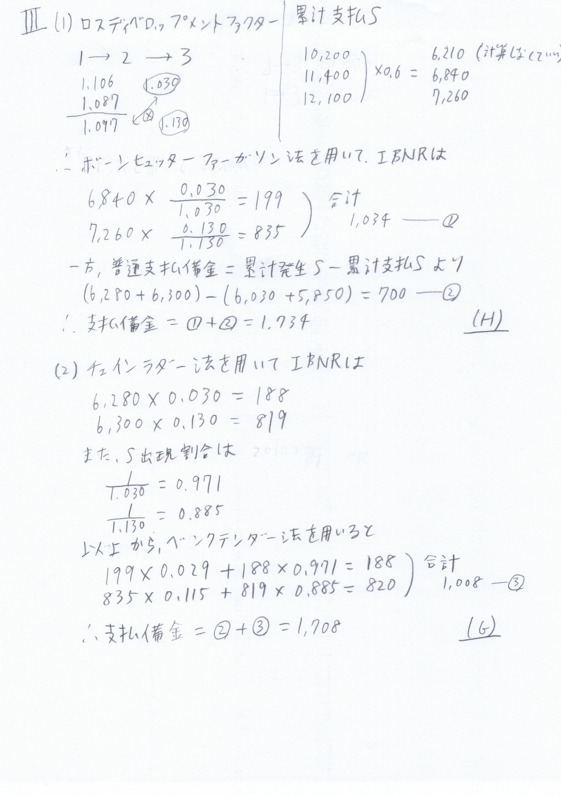 III (1) ロスディベロップメントファクター
1 → 2 → 3
1.106 1.030
1.087
1.097 ② 1.130
累計支払S
10,200 6,210 (計算しなくていい)
11,400 ×0.6 = 6,840
12,100 7,260
∴ ボーンヒュッターファーガソン法を用いて、IBNRは
6,840 × 0.030/1.030 = 199 合計
7,260 × 0.130/1.130 = 835 1,034 ――①
一方、普通支払備金 = 累計発生S − 累計支払S より
(6,280 + 6,300) − (6,030 + 5,850) = 700 ――②
∴ 支払備金 = ① + ② = 1,734 (H)
(2) チェインラダー法を用いて IBNRは
6,280 × 0.030 = 188
6,300 × 0.130 = 819
また、S出現割合は
1/1.030 = 0.971
1/1.130 = 0.885
以上から、ベンクテンダー法を用いると
199 × 0.029 + 188 × 0.971 = 188 合計
835 × 0.115 + 819 × 0.885 = 820 1,008 ―③
∴ 支払備金 = ② + ③ = 1,708 (G)